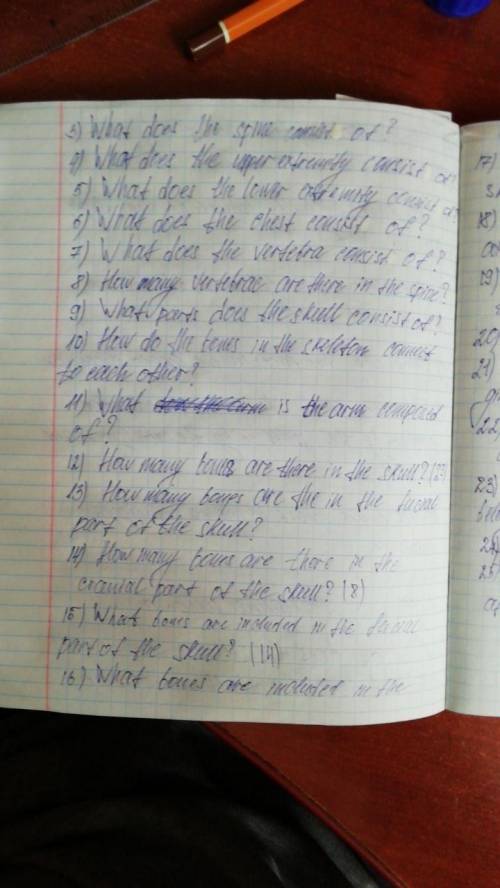 3) What does the spine consist of?
4) What does the upper extremity consist of?
5) What does the lower extremity consist of?
6) What does the chest consist of?
7) What does the vertebra consist of?
8) How many vertebrae are there in the spine?
9) What parts does the skull consist of?
10) How do the bones in the skeleton connect
to each other?
11) What is the arm composed
of?
12) How many bones are there in the skull? (23)
13) How many bones are the in the facial
part of the skull?
14) How many bones are there in the
cranial part of the skull? (8)
15) What bones are included in the facial
part of the skull? (14)
16) What bones are included in the
17)
18)
19)
20)
21)
22)
23)
24)
25)